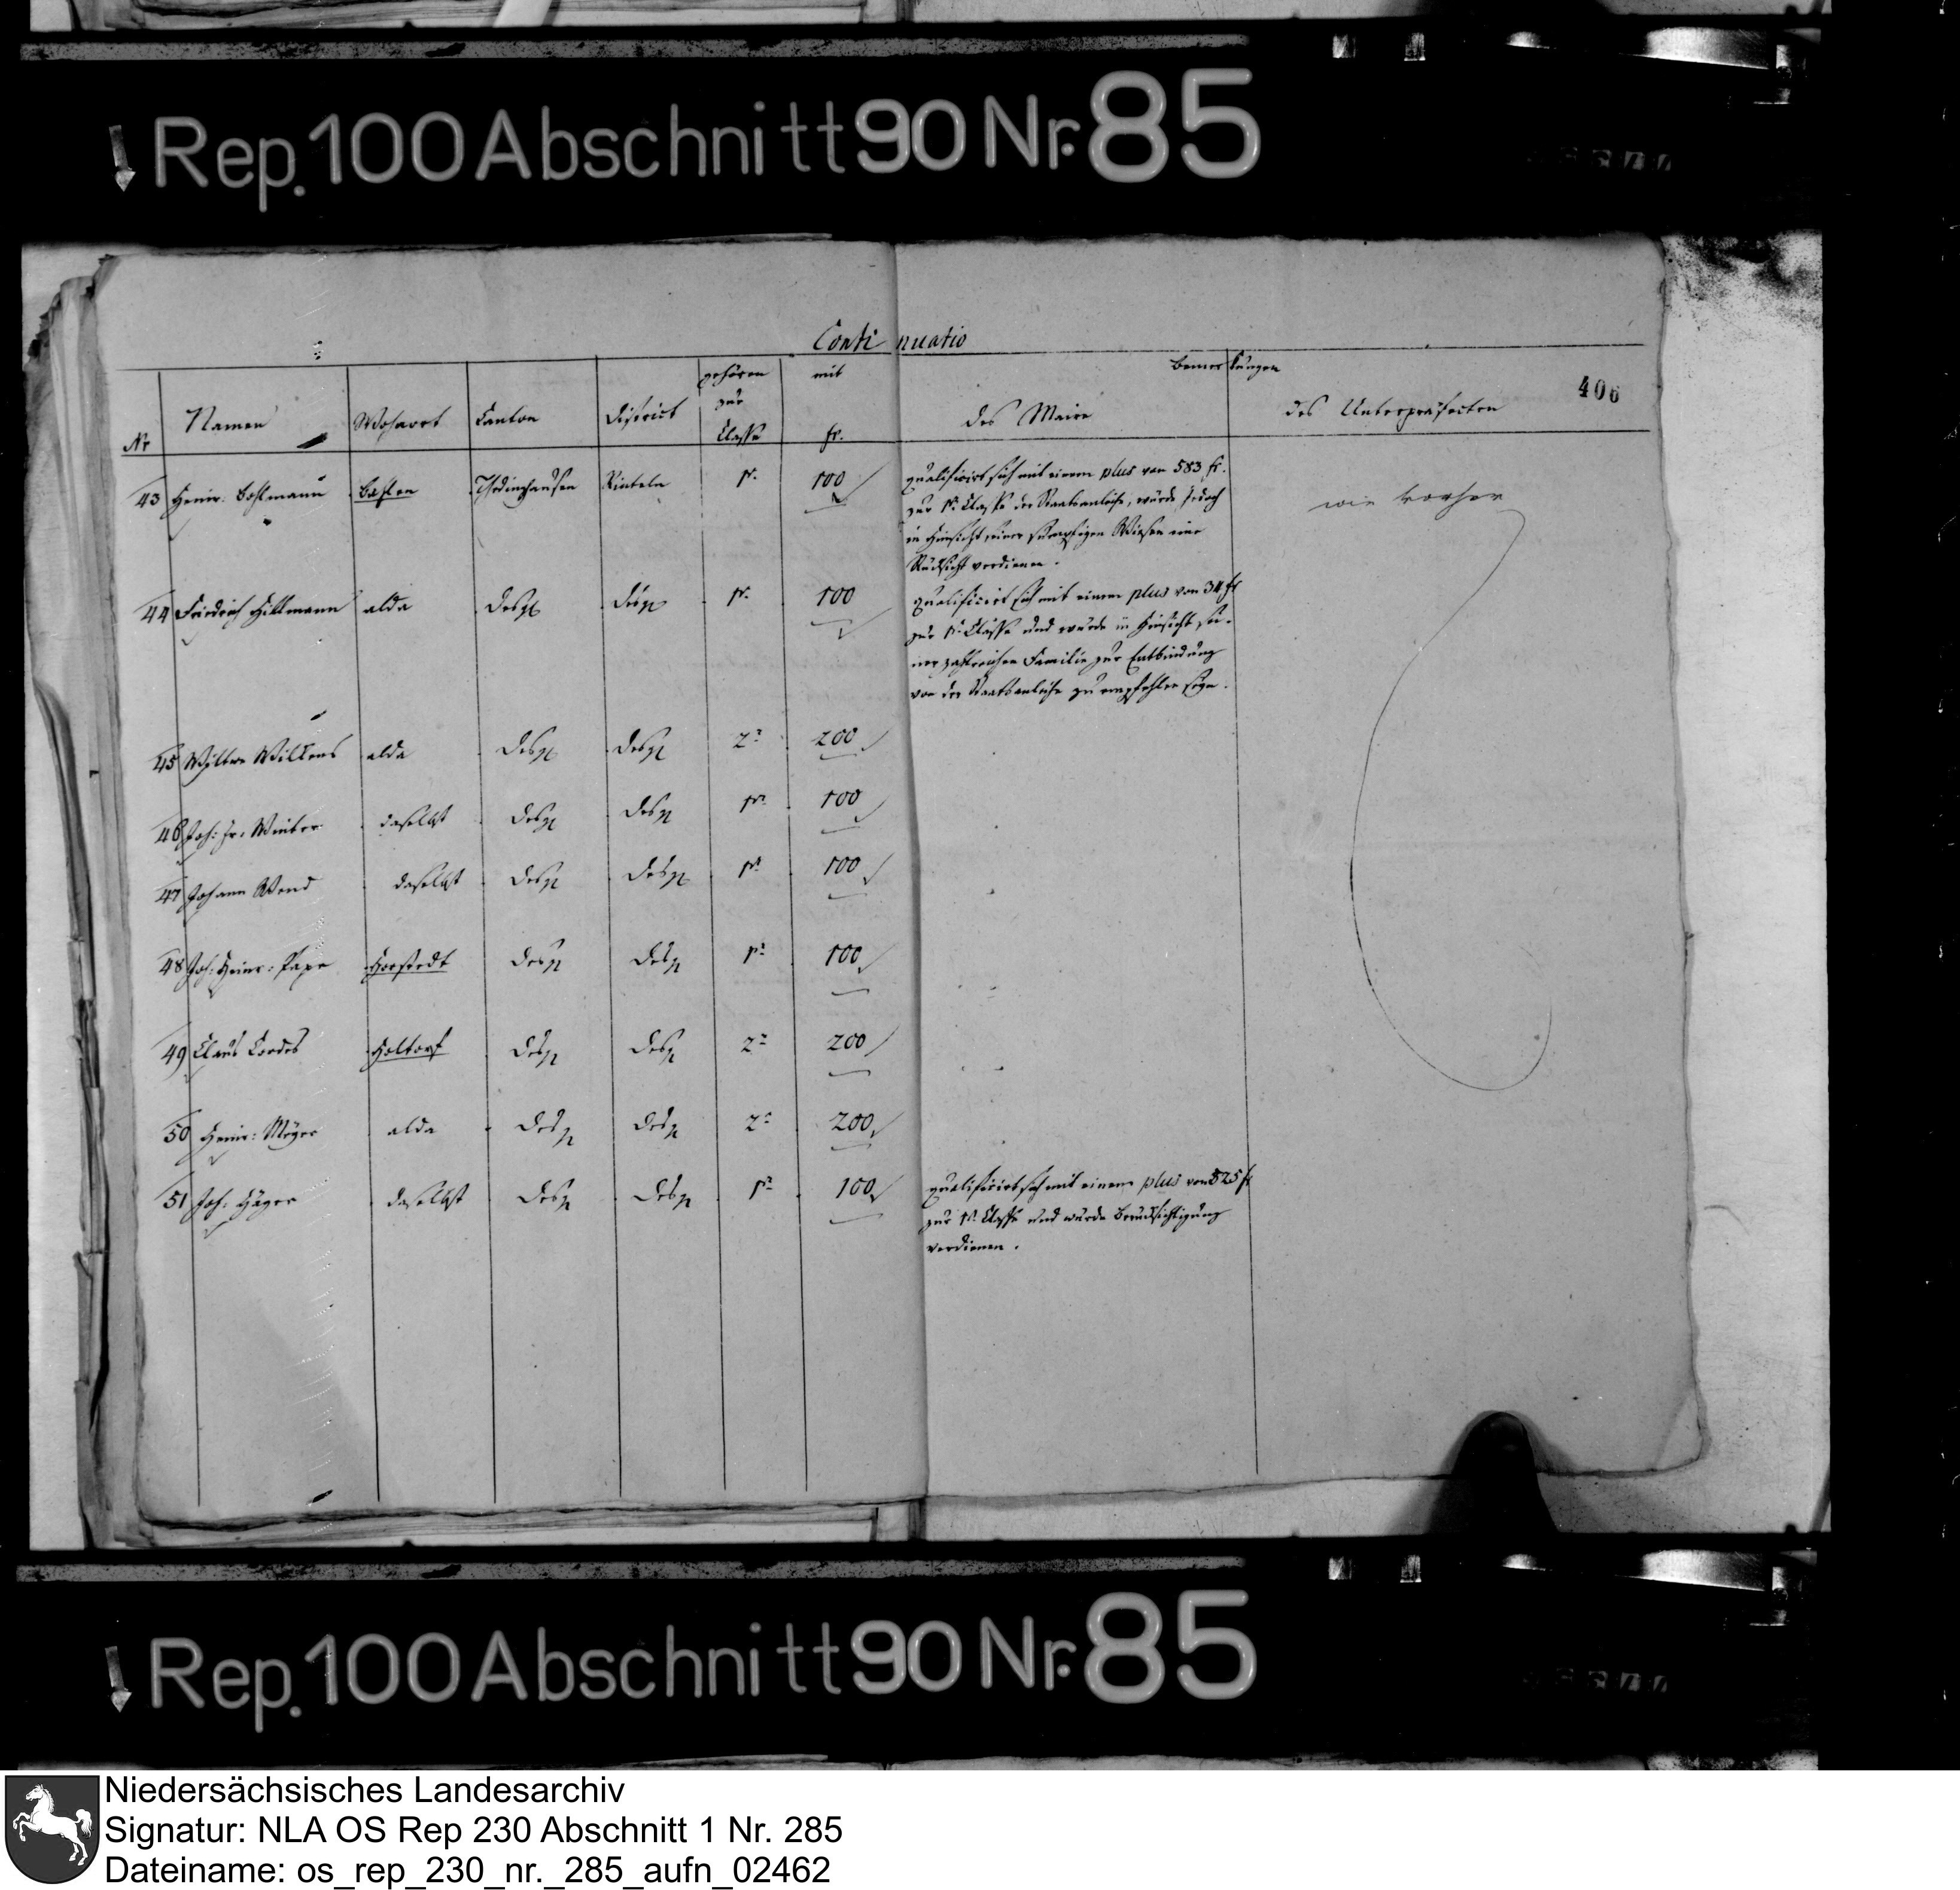 Rep. 100 Abschnitt 90 Nr. 85
Continuatio
406
Nr Namen Wohnort Canton District gehören zur Classe mit fr. Bemerkungen des Maire des Unterpräfecten
43 Heinr. Bohlmann Bahlen Thedinghausen Rinteln 1r. 100 qualificirt sich mit einem plus von 583 fr. wie vorher
zur 1n Classe der Staatsanleihe, würde jedoch
in Hinsicht seiner sumpfigen Wiesen eine
Rücksicht verdienen.
44 Friedrich Hillmann alda desgl desgl 1r. 100 qualificirt sich mit einem plus von 34 fr
zur 1n Classe und würde in Hinsicht sei-
ner zahlreichen Familie zur Entbindung
von der Staatsanleihe zu empfehlen seyn.
45 Wittwe Willens alda desgl desgl 2r 200
46 Joh: Fr. Winter daselbst desgl desgl 1r 100
47 Johann Wend daselbst desgl desgl 1r 100
48 Joh: Heinr: Pape Horstedt desgl desgl 1r 100
49 Claus Cordes Holtorf desgl desgl 2r 200
50 Heinr: Meyer alda desgl desgl 2r 200
51 Joh: Häger daselbst desgl desgl 1r 100 qualificirt sich mit einem plus von 525 fr
zur 1n Classe und würde Berücksichtigung
verdienen.
Rep. 100 Abschnitt 90 Nr. 85
Niedersächsisches Landesarchiv
Signatur: NLA OS Rep 230 Abschnitt 1 Nr. 285
Dateiname: os_rep_230_nr._285_aufn_02462